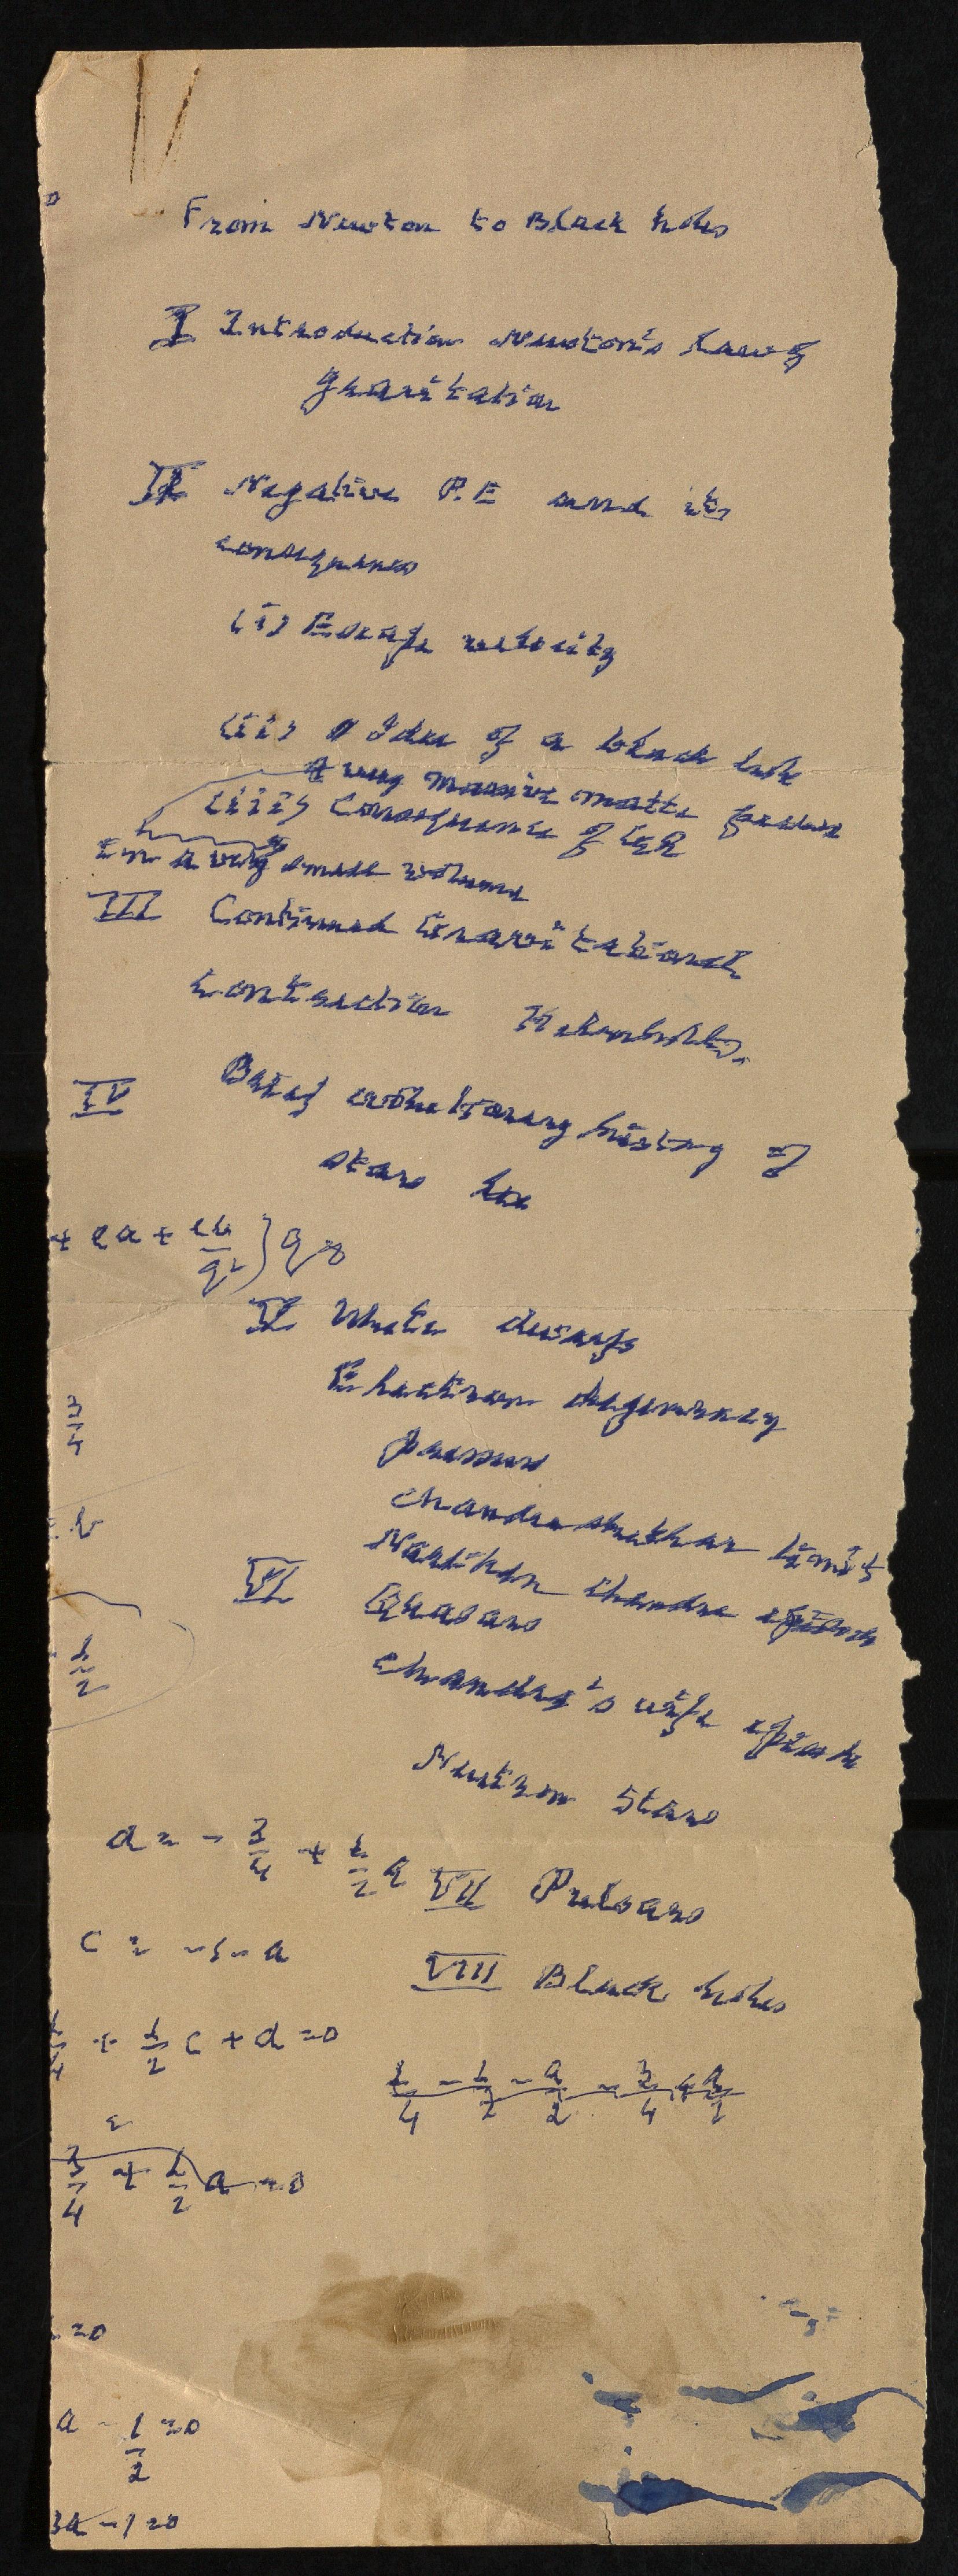 From Newton to Black holes
I Introduction Newton's Law of
gravitation
II Negative P.E and its
consequences
(i) Escape velocity
(ii) Idea of a black hole
A very massive matter
(iii) Consequence of GR
in a very small volume
III Continued Gravitational
Contraction
IV Brief evolutionary history of
stars
+ 2a +
V White dwarfs
Electron degeneracy
pressure
Chandrasekhar limit
Narlikar Chandra episode
VI Quasars
Chandra's wife episode
Neutron Stars
d = - 3/4 + 1/2 a
VII Pulsars
c = -1 - a
VIII Black holes
1/4 + 1/2 c + d = 0
1/4 - 1/2 - a/2 - 3/4 + a/2
3/4 + 1/2 a = 0
= 0
a - 1/2 = 0
3a - 1 = 0